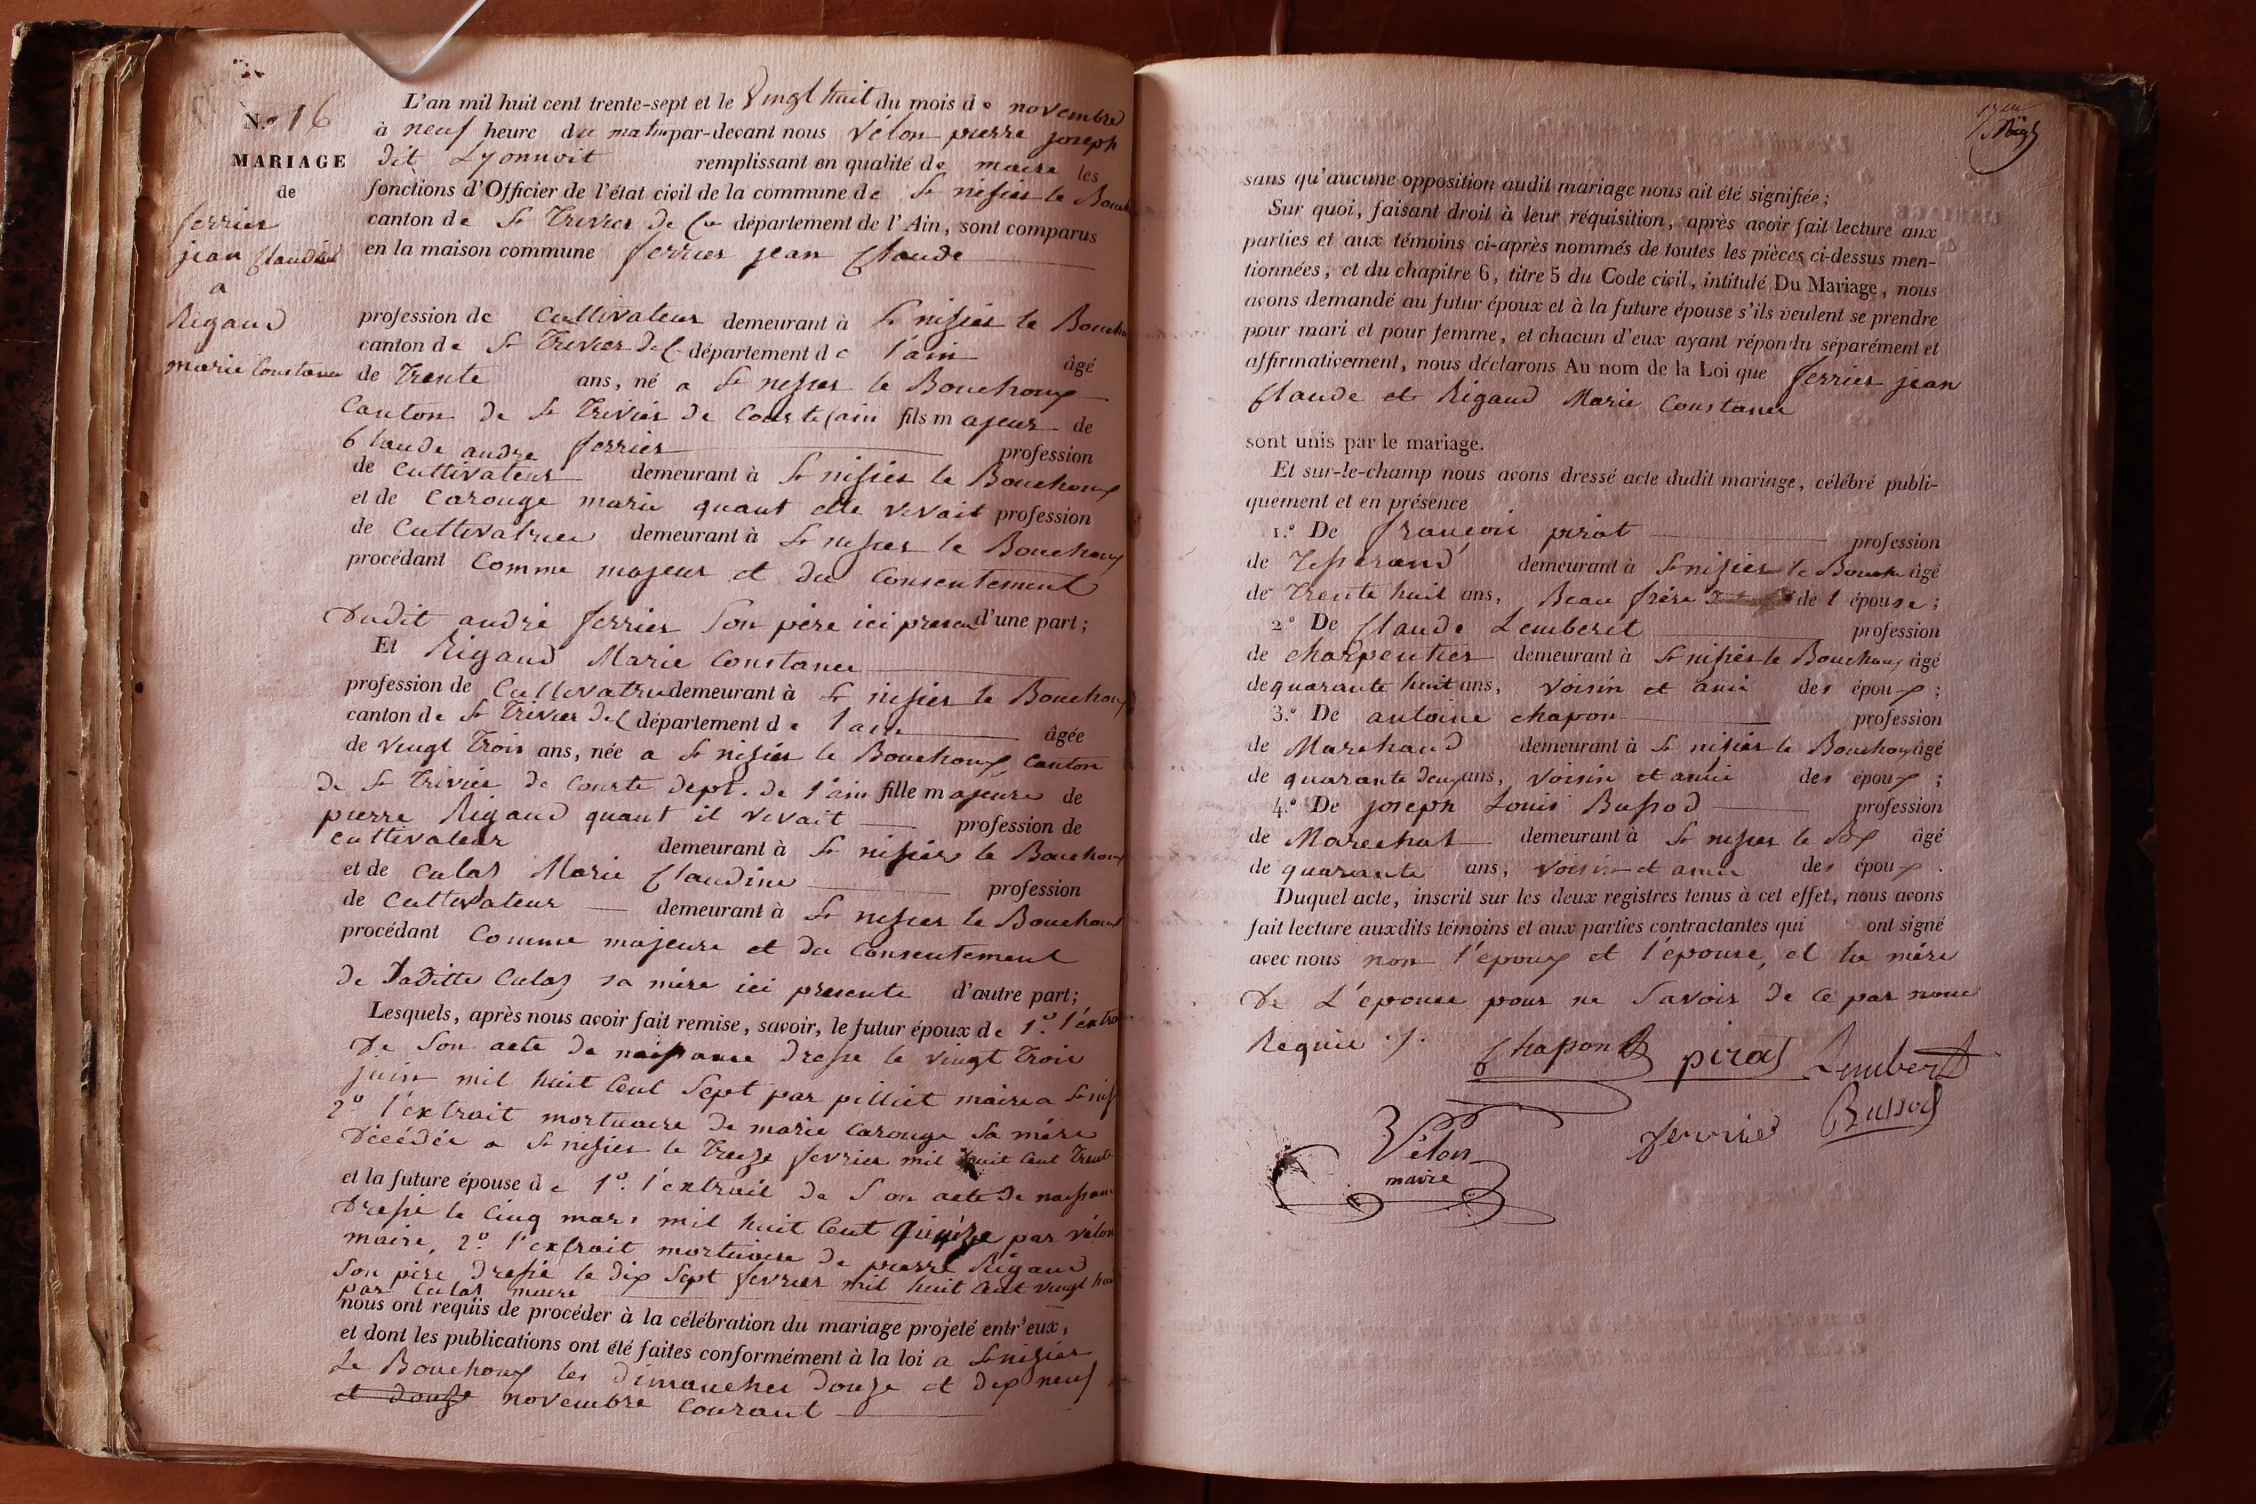 N.o 16
MARIAGE
de
ferrier
jean Claude
a
Rigaud
marie Constance
L'an mil huit cent trente-sept et le Vingt huit du mois de novembre
à neuf heure du matin par-devant nous Vélon pierre joseph
dit Lyonnoit remplissant en qualité de maire les
fonctions d'Officier de l'état civil de la commune de St nisier le Bouch
canton de St Trivier de Cte département de l'Ain, sont comparus
en la maison commune ferrier jean Claude
profession de Cultivateur demeurant à St nisier le Bouchou
canton de St Trivier de C département de l'ain âgé
de Trente ans, né a St nisier le Bouchoux
Canton de St Trivier de Courte (ain fils majeur de
Claude andre ferrier profession
de Cultivateur demeurant à St nisier le Bouchoux
et de Carouge marie quant elle vivait profession
de Cultivatrice demeurant à St nisier le Bouchoux
procédant Comme majeur et du Consentement
Dudit andré ferrier Son père ici présent d'une part;
Et Rigaud Marie Constance
profession de Cultivatrice demeurant à St nisier le Bouchoux
canton de St Trivier de C département de l'ain âgée
de vingt Trois ans, née a St nisier le Bouchoux Canton
de St Trivier de Courte dept. de l'ain fille majeure de
pierre Rigaud quant il vivait profession de
cultivateur demeurant à St nisier le Bouchoux
et de Culas Marie Claudine profession
de Cultivateur demeurant à St nisier le Bouchoux
procédant Comme majeure et du Consentement
de Laditte Culas sa mère ici presente d'autre part;
Lesquels, après nous avoir fait remise, savoir, le futur époux de 1.o l'extrait
De Son acte de naissance dressé le vingt Trois
juin mil huit Cent Sept par pilliot maire a St nis
2.o l'extrait mortuaire de marie Carouge Sa mère
Décédée a St nisier le Treize fevrier mil huit Cent Trente
et la future épouse de 1.o l'extrait de Son acte de naissance
Dressé le Cinq mars mil huit Cent quinze par vélon
maire, 2.o l'extrait mortuaire de pierre Rigaud
Son père dressé le dix Sept fevrier mil huit Cent vingt huit
par Culas maire
nous ont requis de procéder à la célébration du mariage projeté entr'eux,
et dont les publications ont été faites conformément à la loi a St nisier
Le Bouchoux les dimanches douze et dix neuf
et douze novembre Courant
sans qu'aucune opposition audit mariage nous ait été signifiée;
Sur quoi, faisant droit à leur réquisition, après avoir fait lecture aux
parties et aux témoins ci-après nommés de toutes les pièces ci-dessus men-
tionnées, et du chapitre 6, titre 5 du Code civil, intitulé Du Mariage, nous
avons demandé au futur époux et à la future épouse s'ils veulent se prendre
pour mari et pour femme, et chacun d'eux ayant répondu séparément et
affirmativement, nous déclarons Au nom de la Loi que ferrier jean
Claude et Rigaud Marie Constance
sont unis par le mariage.
Et sur-le-champ nous avons dressé acte dudit mariage, célébré publi-
quement et en présence
1.o De françois pirat profession
de Tisserand demeurant à St nisier le Bouchx âgé
de Trente huit ans, Beau frère de l épouse;
2.o De Claude Lemberet profession
de charpentier demeurant à St nisier le Bouchoux âgé
de quarante huit ans, voisin et ami des époux;
3.o De antoine chapon profession
de Marchand demeurant à St nisier le Bouchoux âgé
de quarante deux ans, voisin et ami des époux;
4.o De joseph Louis Bussod profession
de Marechal demeurant à St nisier le Bx âgé
de quarante ans, voisin et ami des époux.
Duquel acte, inscrit sur les deux registres tenus à cet effet, nous avons
fait lecture auxdits témoins et aux parties contractantes qui ont signé
avec nous non l'époux et l'épouse, et la mère
De L'épouse pour ne Savoir de Ce par nous
Requis ./.
Chapon pirat Lemberet
Vélon ferrier Bussod
maire